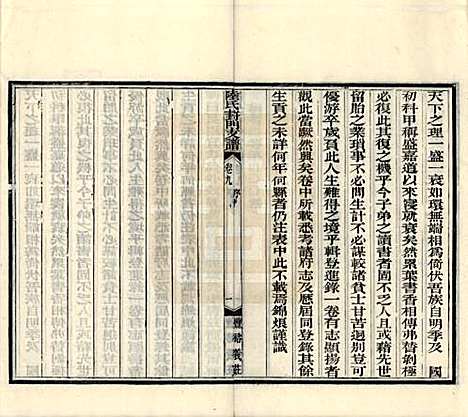 天下之理一盛一衰如環無端相為倚伏吾族自明季及 國
初科甲稱盛嘉道以來寖就衰矣然累葉書香相傳弗替剝
必復此其復之機乎今子弟之讀書者固不乏人且或藉先世
留胎之業瑣事不必問生計不必謀較諸貧士甘苦懸殊
優游卒歲此人生難得之境乎輯登進錄一卷有志顯揚者
觀此當蹶然興矣卷中所載悉考諸府志及歷屆同登錄其
生貢之未詳何年何縣者仍注表中此不載焉錦烺謹識
陸氏葑門支譜
卷九 序
一
豐裕義莊